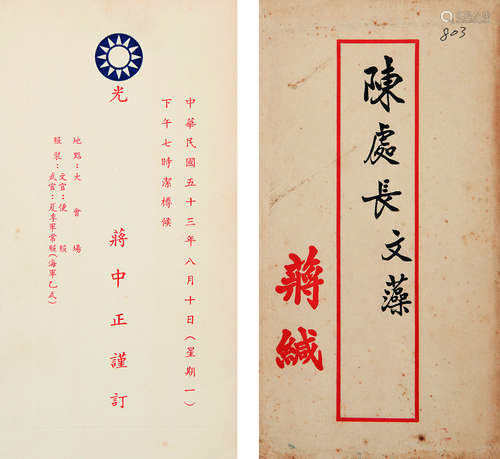 中華民國五十三年八月十日(星期一)
下午七時潔樽候
光
蔣中正謹訂
地點:大會場
服裝:文官:便服
武官:夏季軍常服(海軍乙式)
803
陳處長文藻
蔣緘